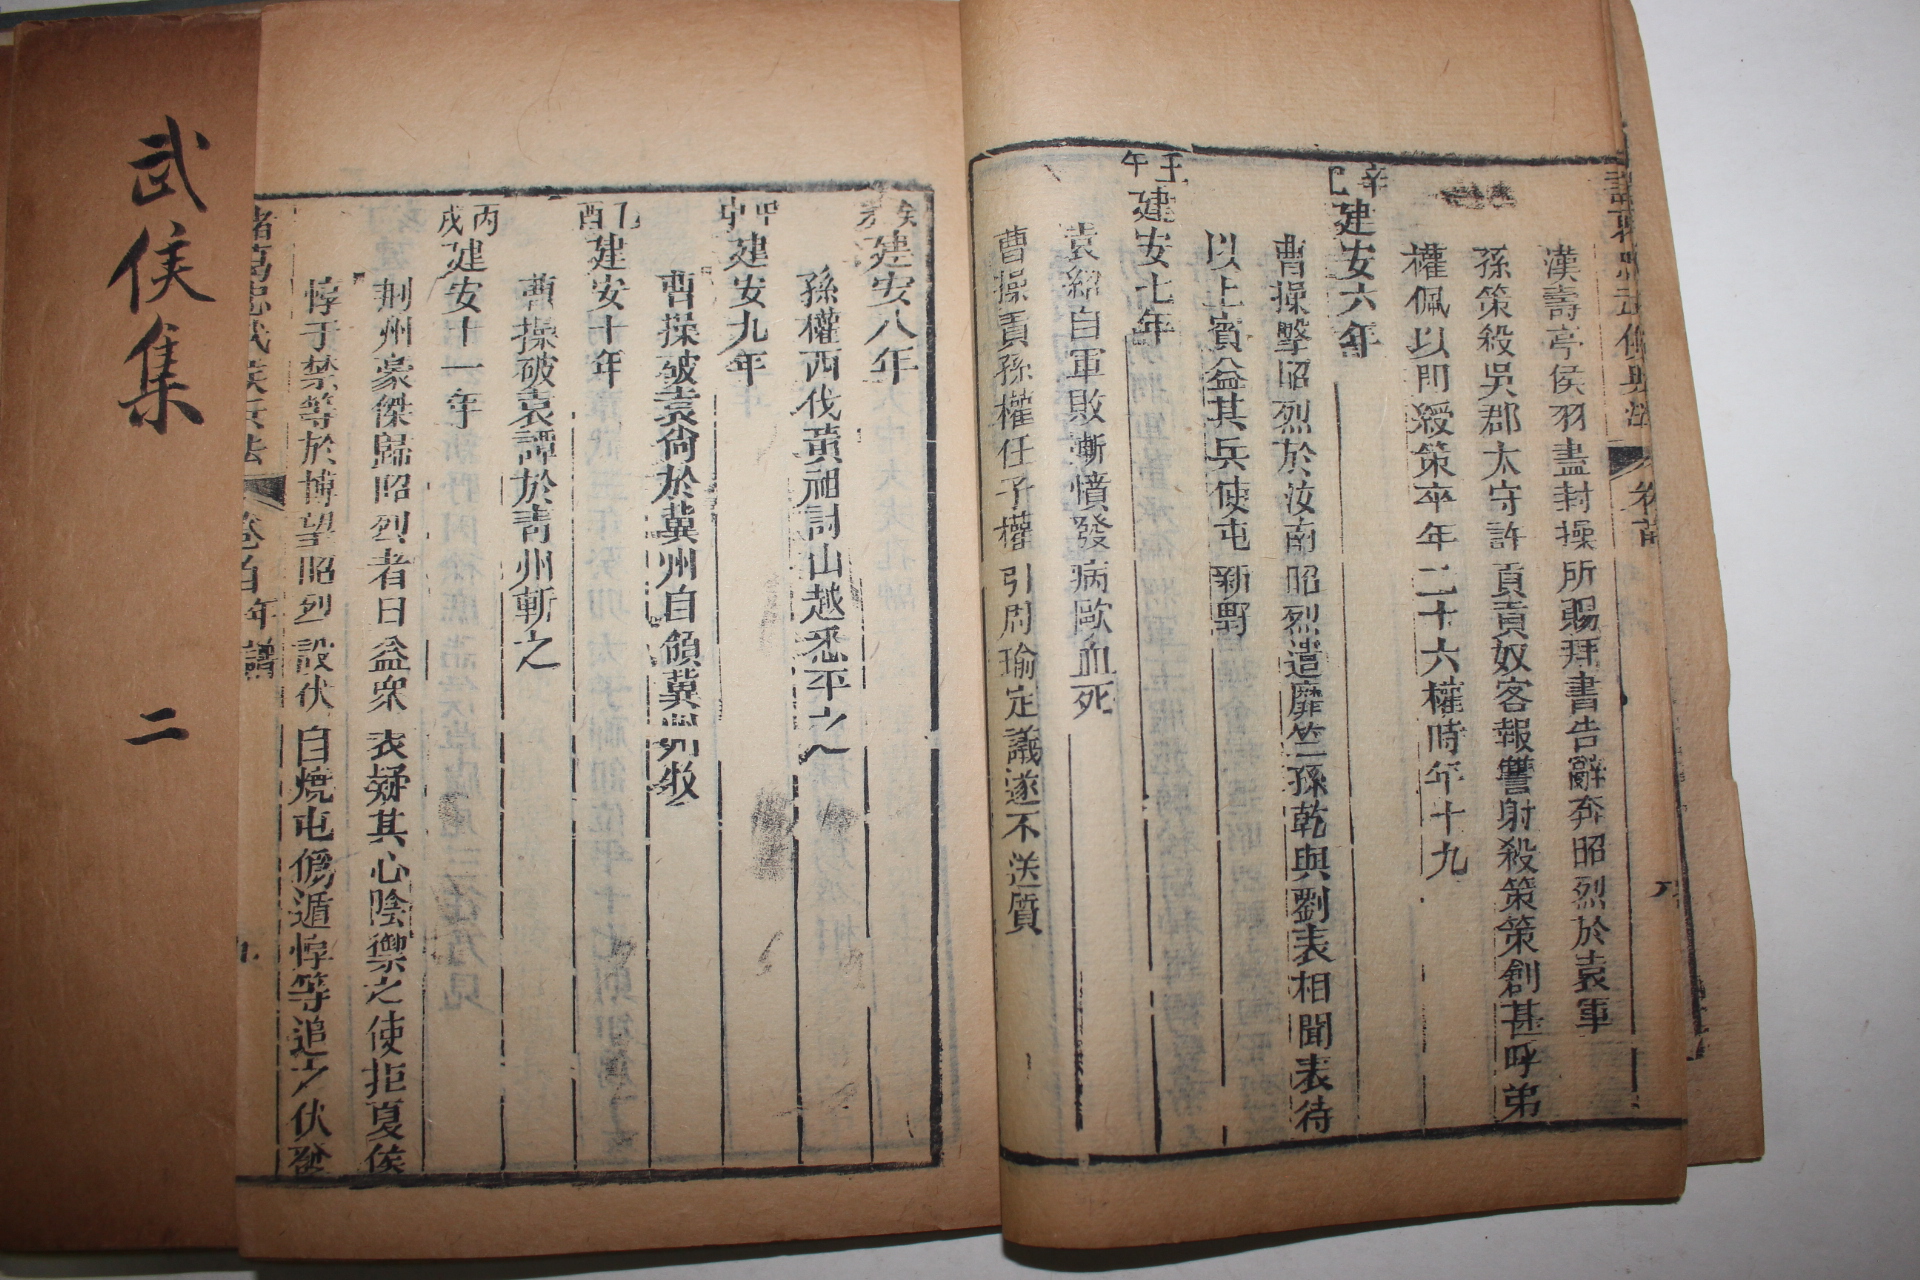 漢壽亭侯羽盡封操所賜拜書告辭奔昭烈於袁軍
孫策殺吳郡太守許貢貢奴客報讐射殺策策創甚呼弟
權佩以印綬策卒年二十六權時年十九
辛巳建安六年
曹操擊昭烈於汝南昭烈遣麋竺孫乾與劉表相聞表待
以上賓益其兵使屯新野
壬午建安七年
袁紹自軍敗慚憤發病歐血死
曹操責孫權任子權引周瑜定議遂不送質
癸未建安八年
孫權西伐黃祖討山越悉平之
甲申建安九年
曹操破袁尙於冀州自領冀州牧
乙酉建安十年
曹操破袁譚於青州斬之
丙戌建安十一年
荆州豪傑歸昭烈者日益衆表疑其心陰禦之使拒夏侯
惇于禁等於博望昭烈設伏自燒屯僞遁惇等追之伏發
諸葛忠武侯兵法 卷首年譜 九
武侯集 二